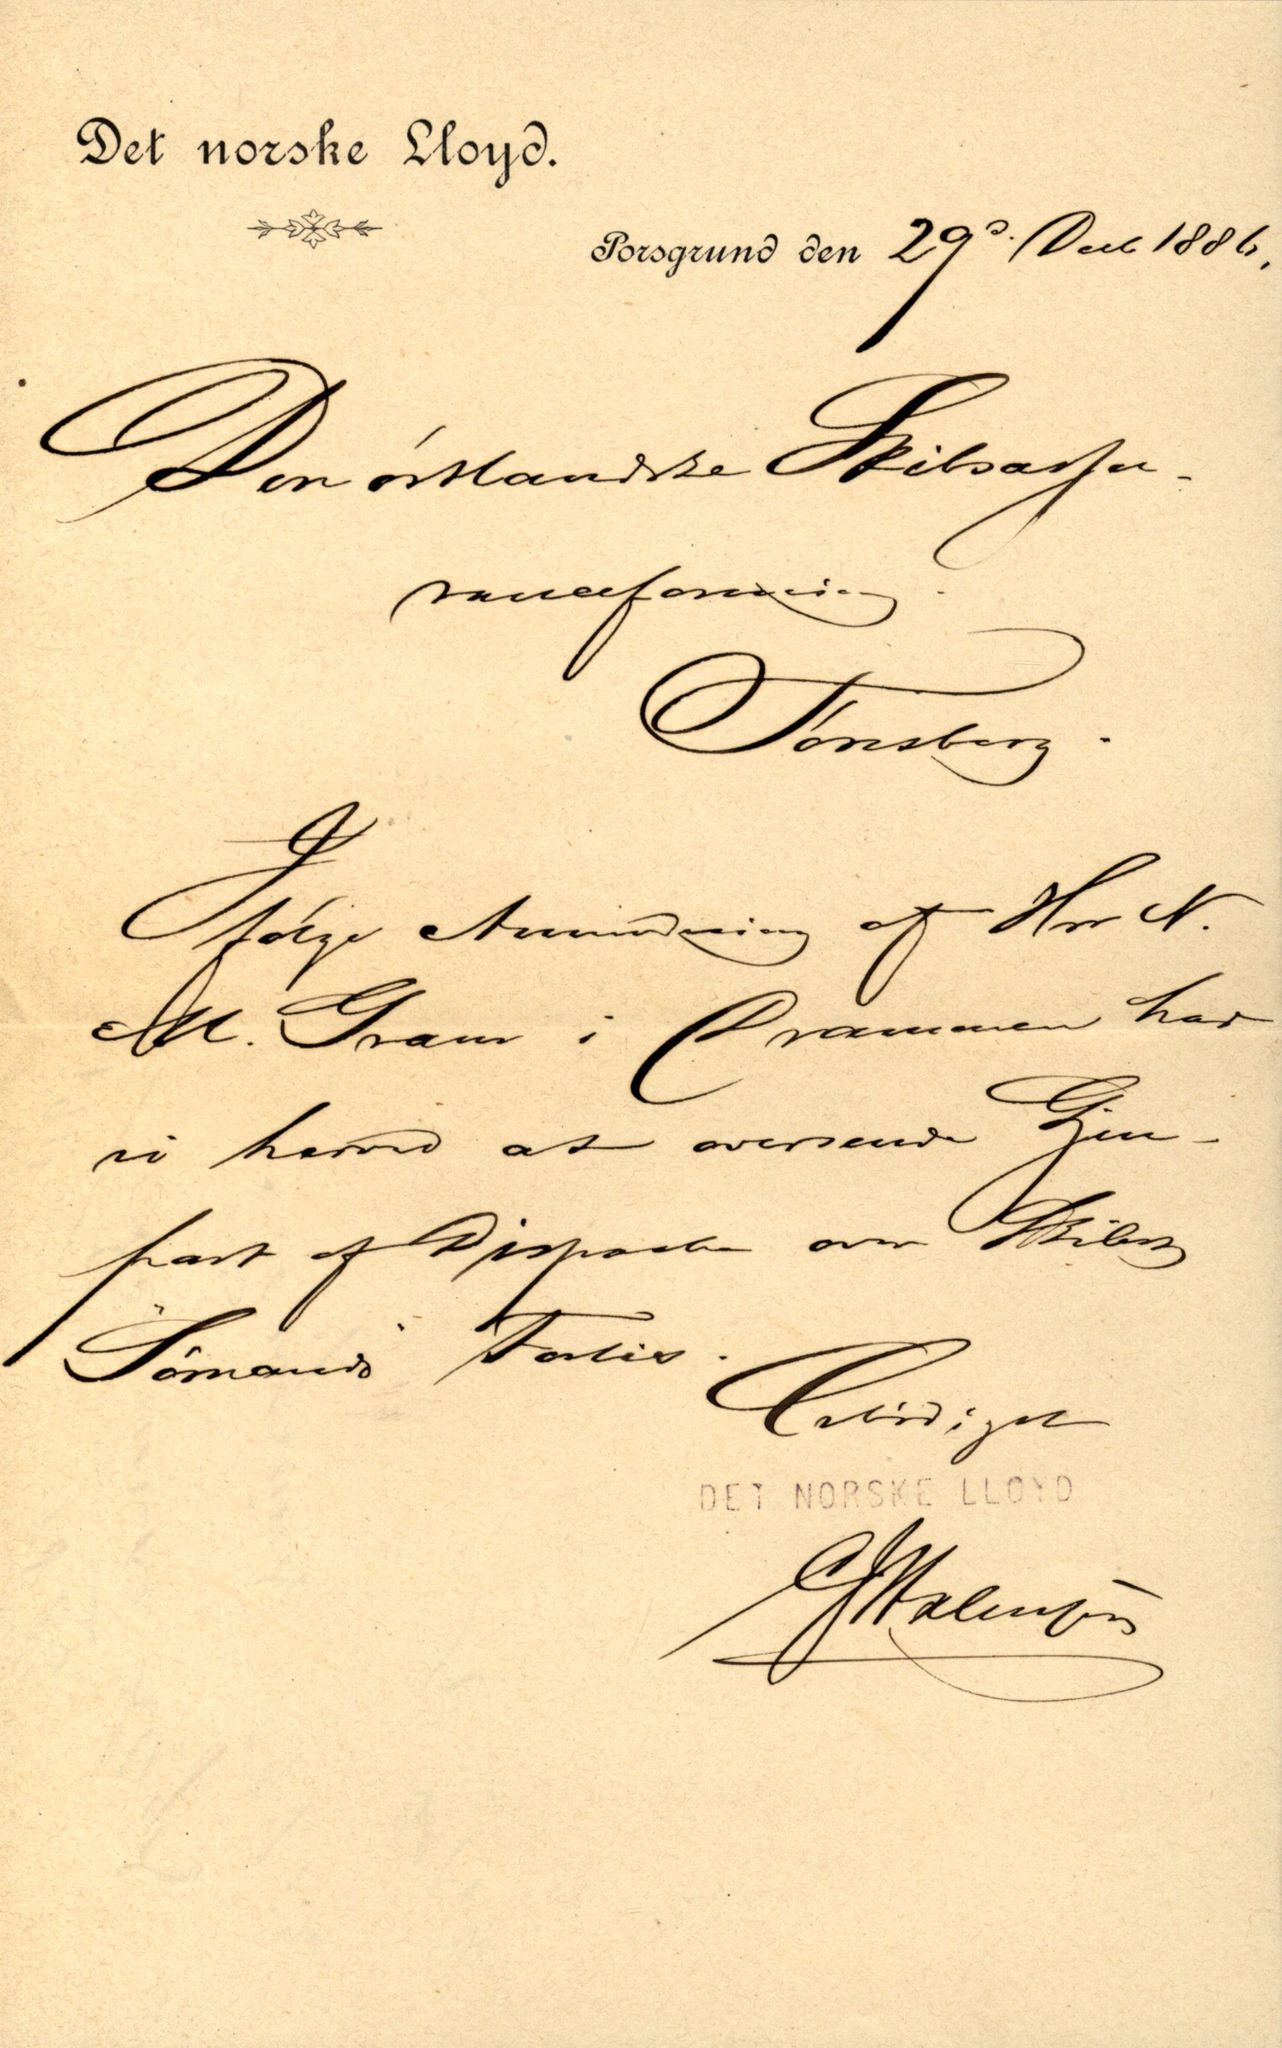 Det norske Lloyd.
Porsgrund den 29d. Decb 1886.
Den östlandske Skibsassu-
ranceforening.
Tönsberg.
Ifölge Anmodning af Hrr N.
M. Gram i Drammen har
vi herved at oversende Gjen-
part af Dispache over Skibet
"Sömand"s Forlis.
Ærbödigst
DET NORSKE LLOYD